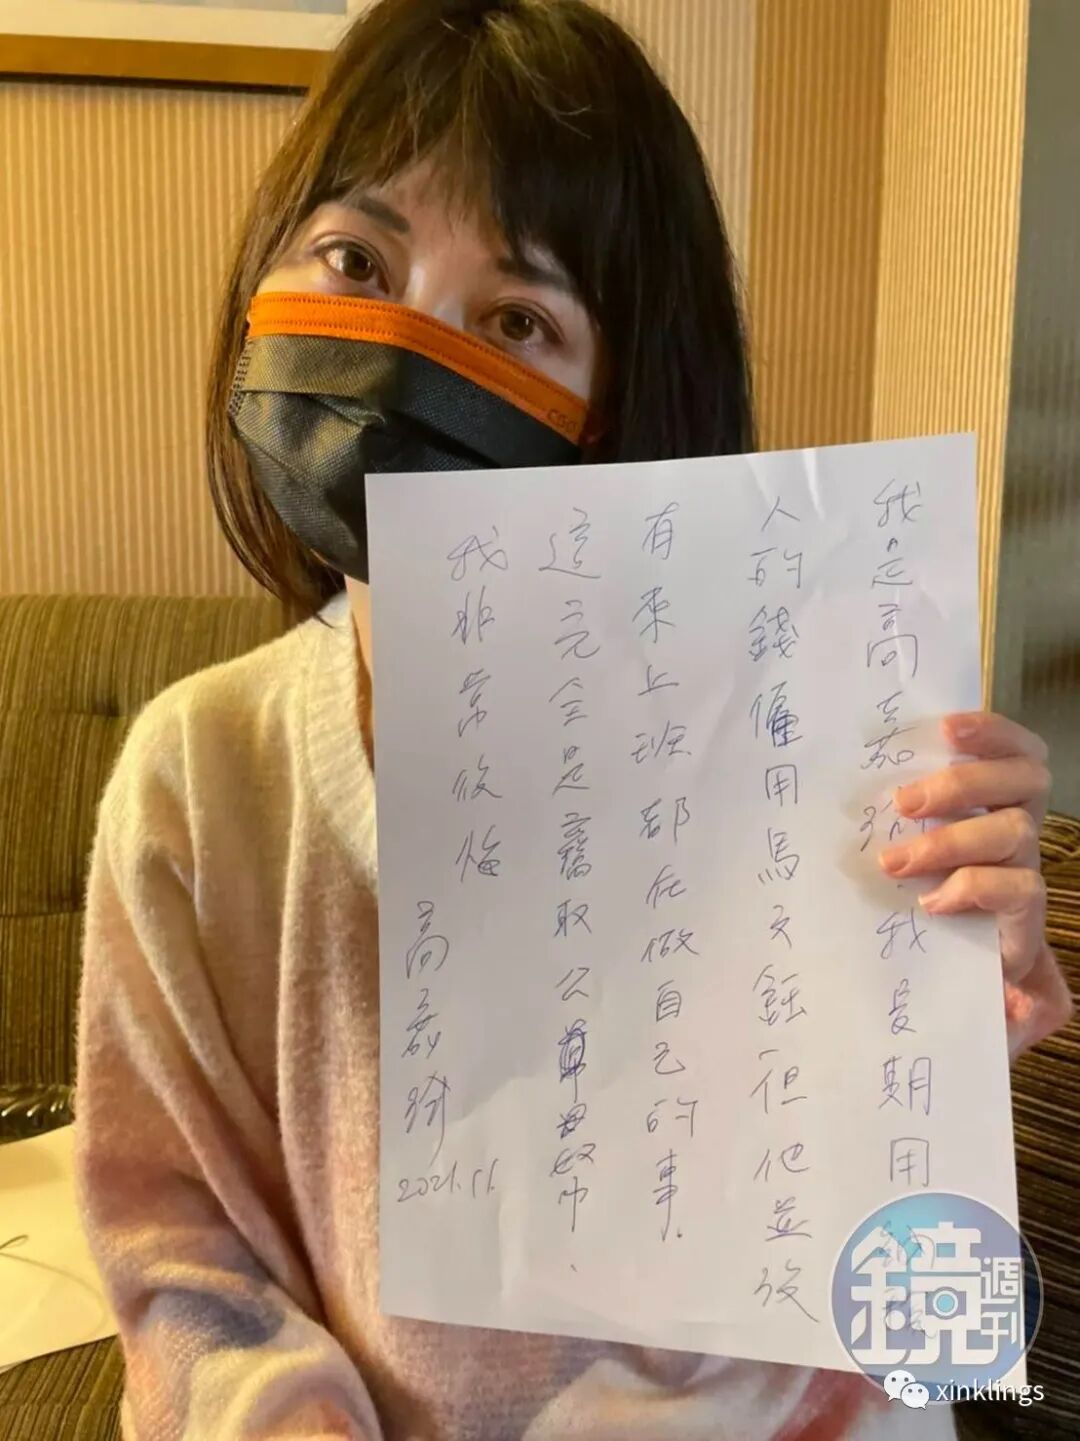 我是高嘉瑜.我長期用納稅
人的錢僱用馬文鈺但他並沒
有來上班都在做自己的事.
這完全是竊取公帑.
我非常後悔
高嘉瑜
2021.11.
CSD
鏡週刊
xinklings